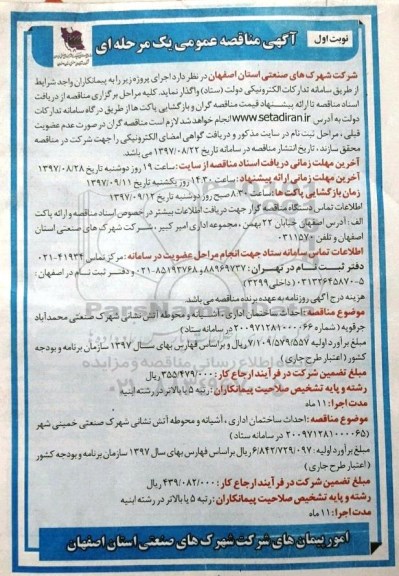 نوبت اول
آگهی مناقصه عمومی یک مرحله ای
شرکت شهرک های صنعتی استان اصفهان در نظر دارد اجرای پروژه زیر را به پیمانکاران واجد شرایط
از طریق سامانه تدارکات الکترونیکی دولت (ستاد) واگذار نماید. کلیه مراحل برگزاری مناقصه از دریافت
اسناد مناقصه تا ارائه پیشنهاد قیمت مناقصه گران و بازگشایی پاکت ها از طریق درگاه سامانه تدارکات
دولت به آدرس www.setadiran.ir انجام خواهد شد. لازم است مناقصه گران در صورت عدم عضویت
قبلی، مراحل ثبت نام در سایت مذکور و دریافت گواهی امضای الکترونیکی را جهت شرکت در مناقصه
محقق سازند، تاریخ انتشار مناقصه در سامانه تاریخ ۱۳۹۷/۰۸/۲۲ می باشد.
آخرین مهلت زمانی دریافت اسناد مناقصه از سایت: ساعت ۱۹ روز دوشنبه تاریخ ۱۳۹۷/۰۸/۲۸
آخرین مهلت زمانی ارائه پیشنهاد: ساعت ۱۴:۳۰ روز یکشنبه تاریخ ۱۳۹۷/۰۹/۱۱
زمان بازگشایی پاکت ها: ساعت ۸:۳۰ صبح روز دوشنبه تاریخ ۱۳۹۷/۰۹/۱۲
اطلاعات تماس دستگاه مناقصه گزار جهت دریافت اطلاعات بیشتر در خصوص اسناد مناقصه و ارائه پاکت
الف: آدرس اصفهان خیابان ۲۲ بهمن، مجموعه اداری امیر کبیر، شرکت شهرک های صنعتی استان
اصفهان و تلفن ۰۳۱۱۵۷۰
اطلاعات تماس سامانه ستاد جهت انجام مراحل عضویت در سامانه: مرکز تماس ۴۱۹۳۴-۰۲۱
دفتر ثبت نام در تهران: ۸۸۹۶۹۷۳۷ و ۸۵۱۹۳۷۶۸-۰۲۱ و دفتر ثبت نام در اصفهان:
۵-۰۳۱۳۲۶۴۵۸۷۰ (داخلی ۳۳۹۹)
هزینه درج آگهی روزنامه به عهده برنده مناقصه می باشد.
موضوع مناقصه: احداث ساختمان اداری، آشیانه و محوطه آتش نشانی شهرک صنعتی محمدآباد
جرقویه (شماره ۲۰۰۹۷۱۲۸۱۰۰۰۰۶۶ در سامانه ستاد)
مبلغ برآورد اولیه ۷/۱۰۹/۵۷۹/۵۵۷ ریال و بر اساس فهارس بهای سال ۱۳۹۷ سازمان برنامه و بودجه
کشور (اعتبار طرح جاری)
مبلغ تضمین شرکت در فرآیند ارجاع کار: ۳۵۵/۴۷۹/۰۰۰ ریال
رشته و پایه تشخیص صلاحیت پیمانکاران: رتبه ۵ یا بالاتر در رشته ابنیه
مدت اجرا: ۱۱ ماه
موضوع مناقصه: احداث ساختمان اداری، آشیانه و محوطه آتش نشانی شهرک صنعتی خمینی شهر
(۲۰۰۹۷۱۲۸۱۰۰۰۰۶۵ در سامانه ستاد)
مبلغ برآورد اولیه: ۶/۸۴۲/۷۲۹/۰۹۷ ریال بر اساس فهارس بهای سال ۱۳۹۷ سازمان برنامه و بودجه کشور
(اعتبار طرح جاری)
مبلغ تضمین شرکت در فرآیند ارجاع کار: ۴۳۹/۰۸۲/۰۰۰ ریال
رشته و پایه تشخیص صلاحیت پیمانکاران: رتبه ۵ یا بالاتر در رشته ابنیه
مدت اجرا: ۱۱ ماه
امور پیمان های شرکت شهرک های صنعتی استان اصفهان